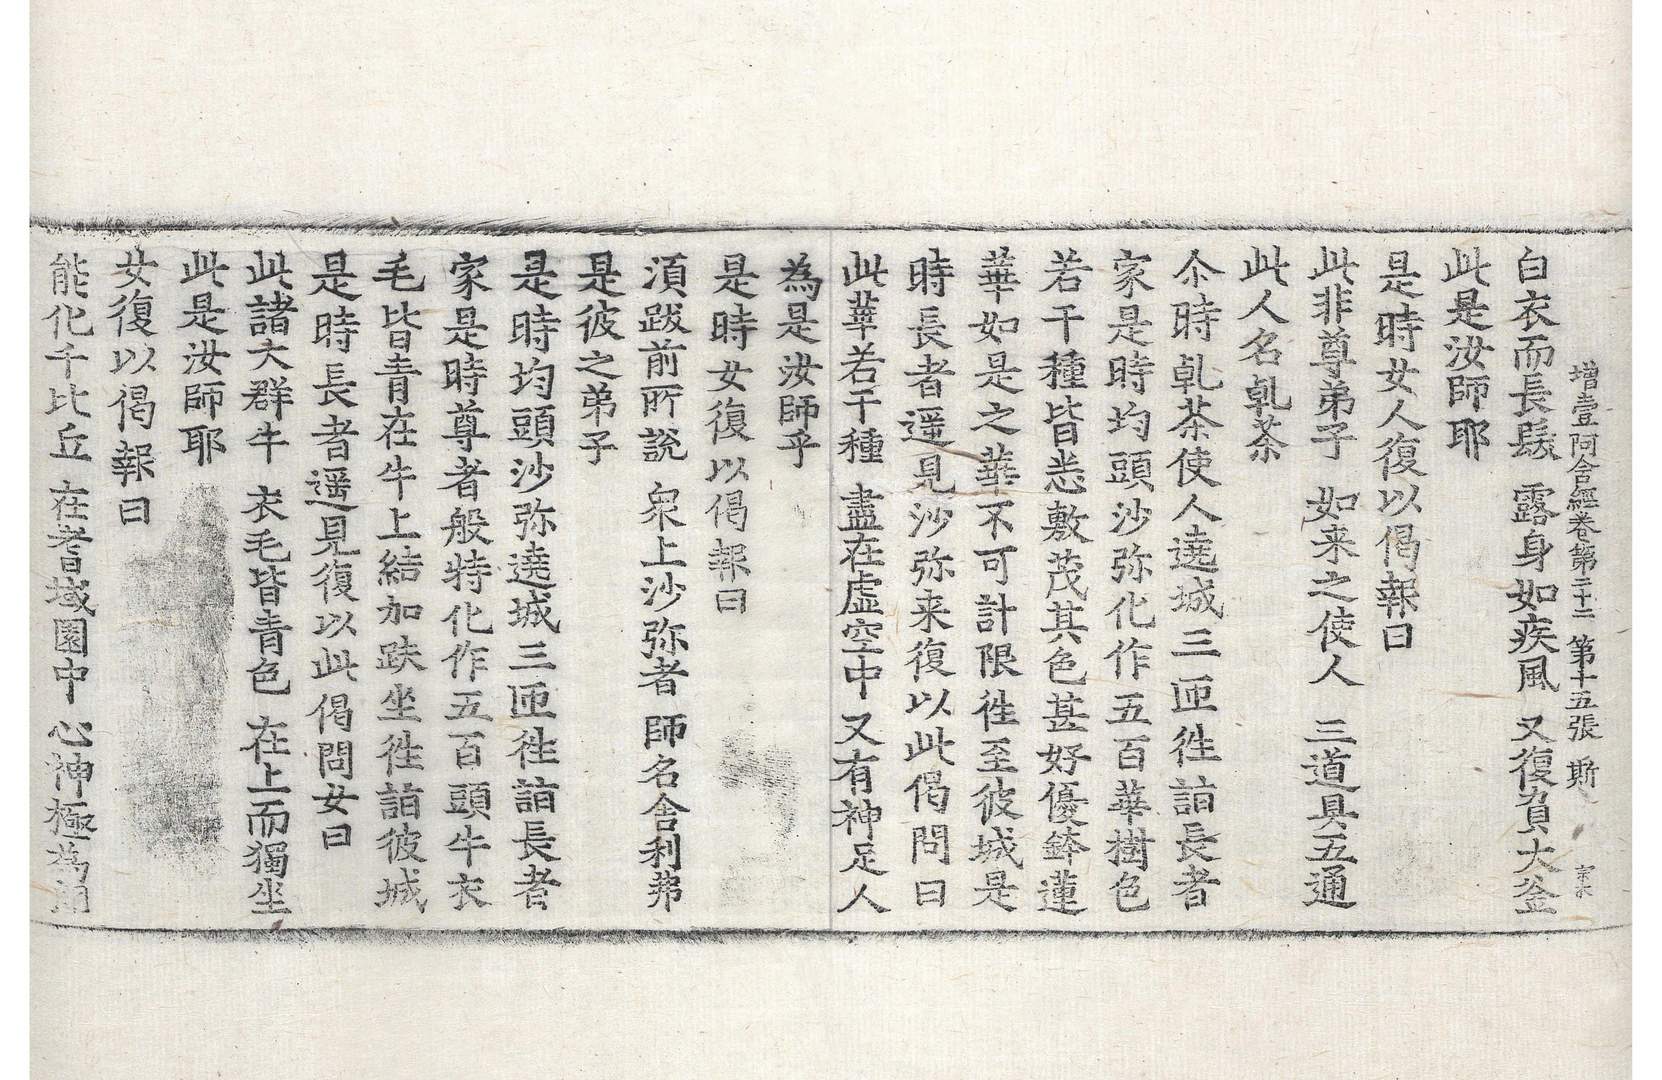 增壹阿含經卷第二十二 第十五張 斯
白衣而長髮 露身如疾風 又復負大釜
此是汝師耶
是時女人復以偈報曰
此非尊弟子 如来之使人 三道具五通
此人名乹茶
尒時乹茶使人遶城三匝徃詣長者
家是時均頭沙弥化作五百華樹色
若干種皆悉敷茂其色甚好優鉢蓮
華如是之華不可計限徃至彼城是
時長者遥見沙弥来復以此偈問曰
此華若干種 盡在虛空中 又有神足人
為是汝師乎
是時女復以偈報曰
湏跋前所說 泉上沙弥者 師名舍利弗
是彼之弟子
是時均頭沙弥遶城三匝徃詣長者
家是時尊者般特化作五百頭牛衣
毛皆青在牛上結加趺坐徃詣彼城
是時長者遥見復以此偈問女曰
此諸大群牛 衣毛皆青色 在上而獨坐
此是汝師耶
女復以偈報曰
能化千比丘 在耆域園中 心神極為明